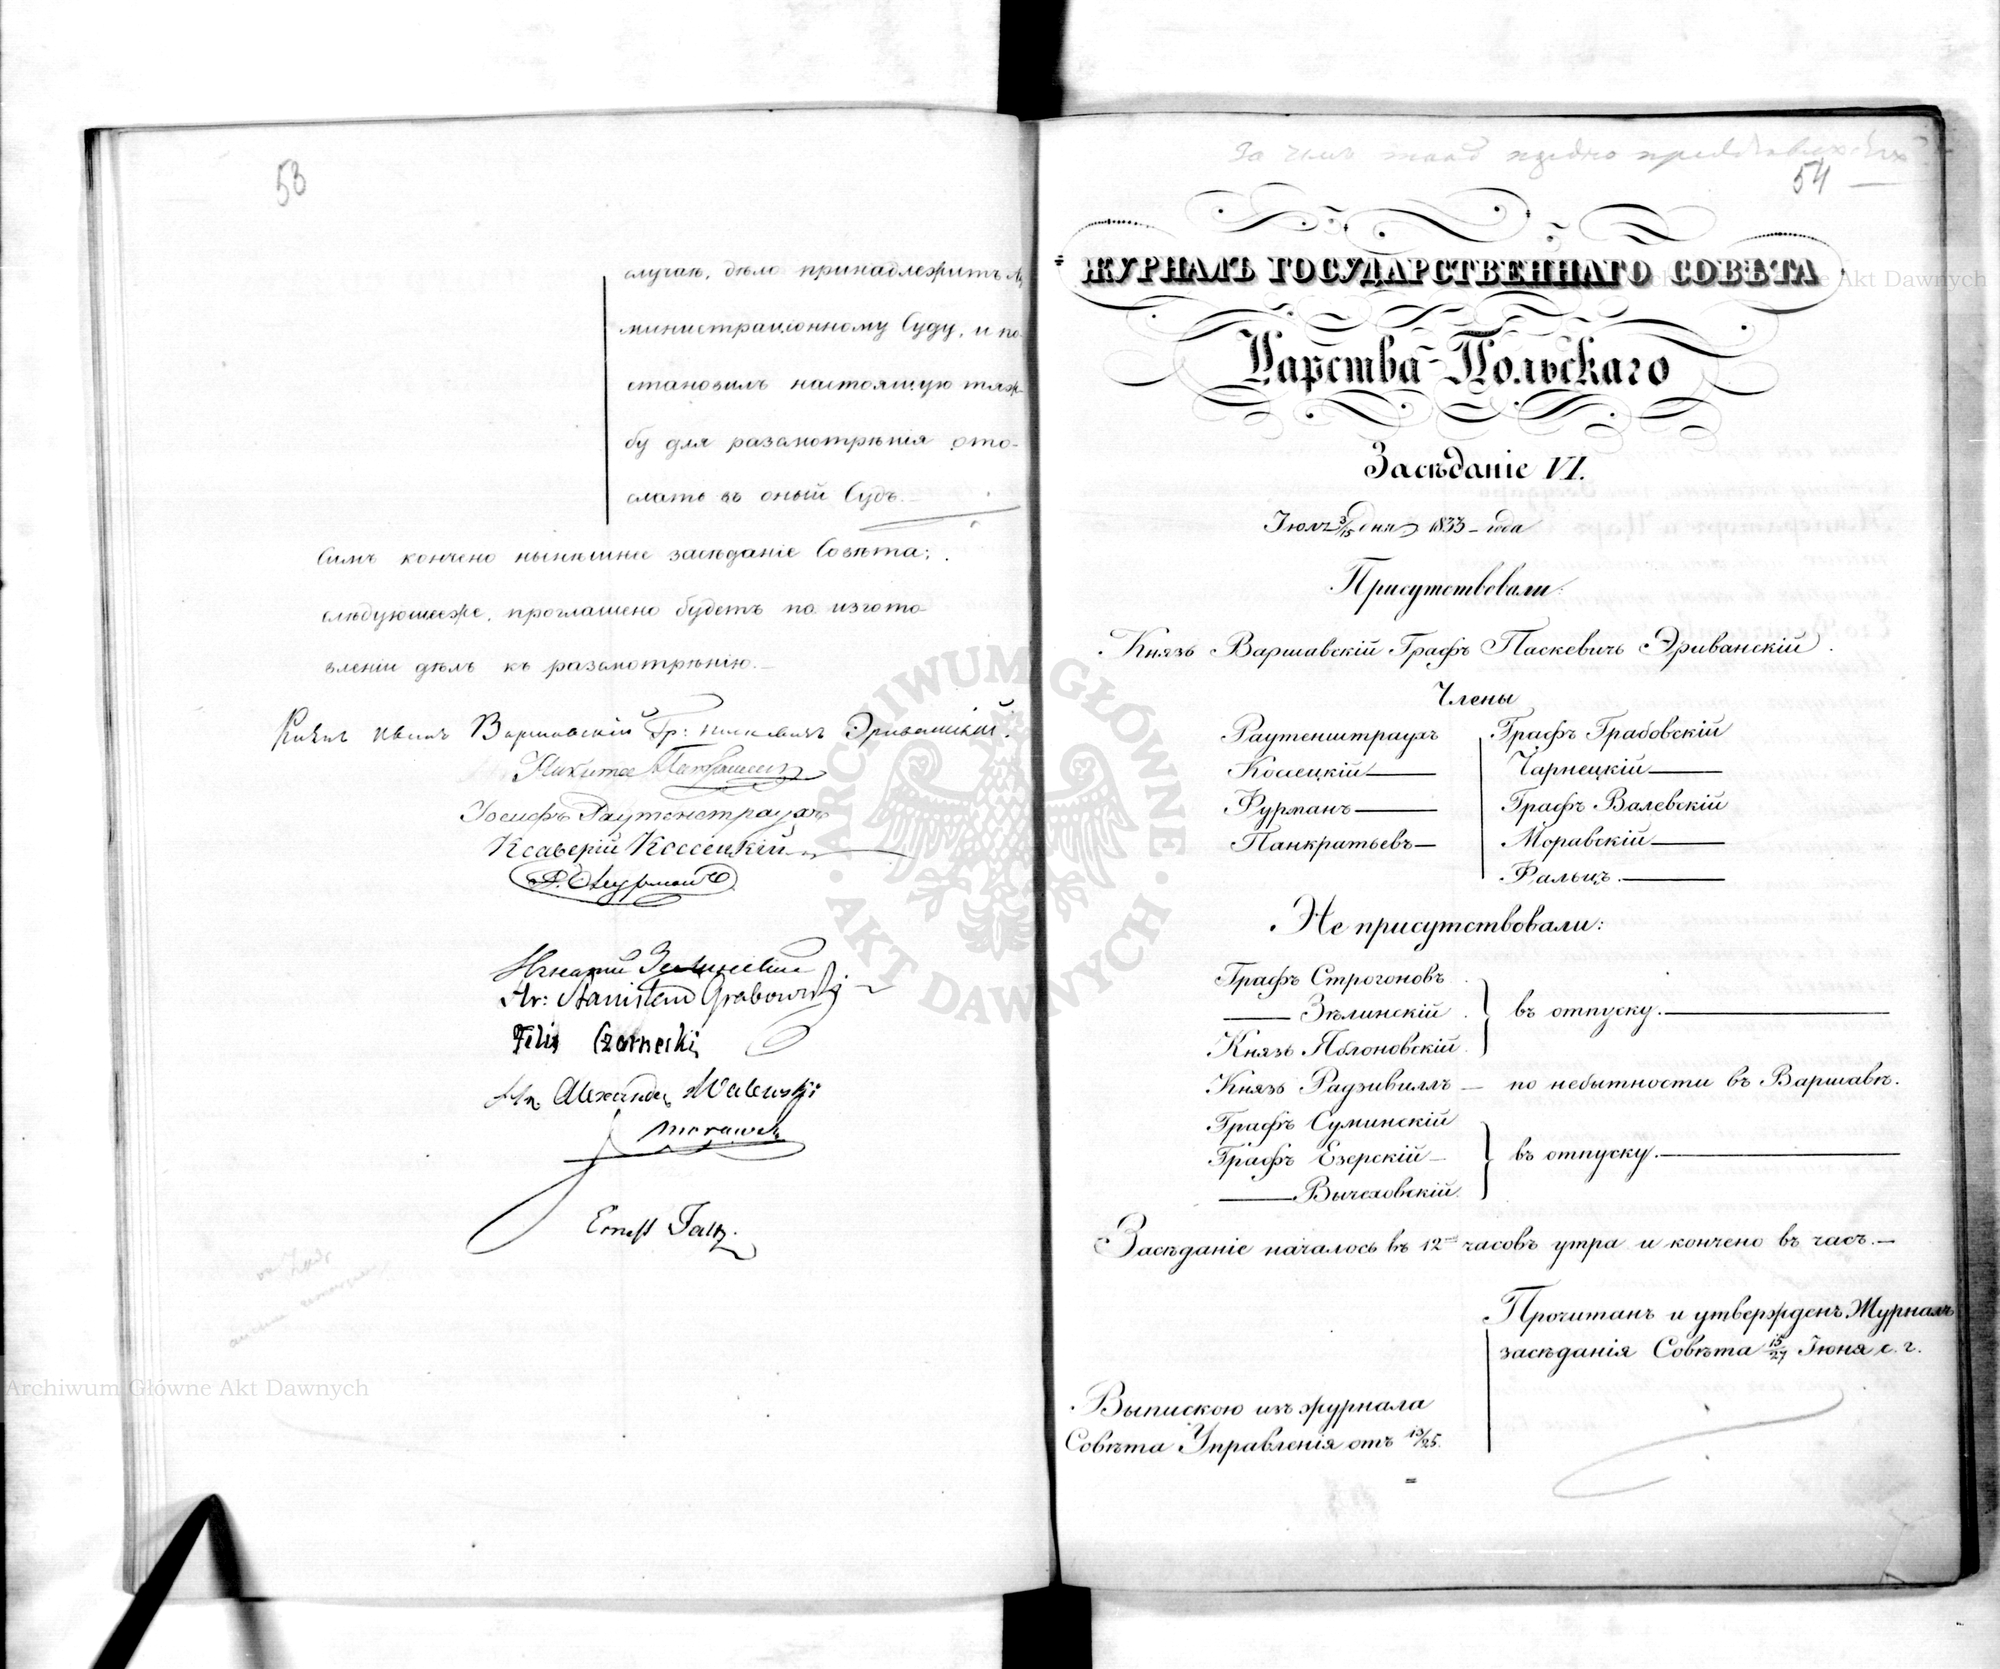 53
случаѣ, дѣло принадлежитъ Ад
министраціонному Суду, и по-
становилъ настоящую тяж-
бу для разсмотрѣнія ото-
слать въ оный Судъ.
Симъ кончено нынѣшнее засѣданіе Совѣта;
слѣдующееже, проглашено будетъ по изгото
вленіи дѣлъ къ разсмотрѣнію.
Варшавскій Гр: Паскевичъ Эриванскій.
Никита Панкратьевъ
Іосифъ Раутенстраухъ
Ксаверій Коссецкій
Фурманъ
Hr: Stanisław Grabowski
Felix Czarnecki
Hr. Alexander Walewski
Morawski
Ernst Faltz.
54
ЖУРНАЛЪ ГОСУДАРСТВЕННАГО СОВѢТА
Царства Польскаго
Засѣданіе VI.
Іюля 3/15 дня 1833 года
Присутствовали:
Князь Варшавскій Графъ Паскевичъ Эриванскій.
Члены
Раутенштраухъ
Коссецкій
Фурманъ
Панкратьевъ
Графъ Грабовскій
Чарнецкій
Графъ Валевскій
Моравскій
Фальцъ.
Не присутствовали:
Графъ Строгоновъ
Зѣлинскій
Князь Яблоновскій
въ отпуску.
Князь Радзивиллъ — по небытности въ Варшавѣ.
Графъ Суминскій
Графъ Езерскій
Вычеховскій
въ отпуску.
Засѣданіе началось въ 12 часовъ утра и кончено въ часъ.
Прочитанъ и утвержденъ Журналъ
засѣданія Совѣта 15/27 Іюня с. г.
Выпискою изъ журнала
Совѣта Управленія отъ 13/25.
ARCHIWUM GŁÓWNE AKT DAWNYCH
Archiwum Główne Akt Dawnych
Archiwum Główne Akt Dawnych